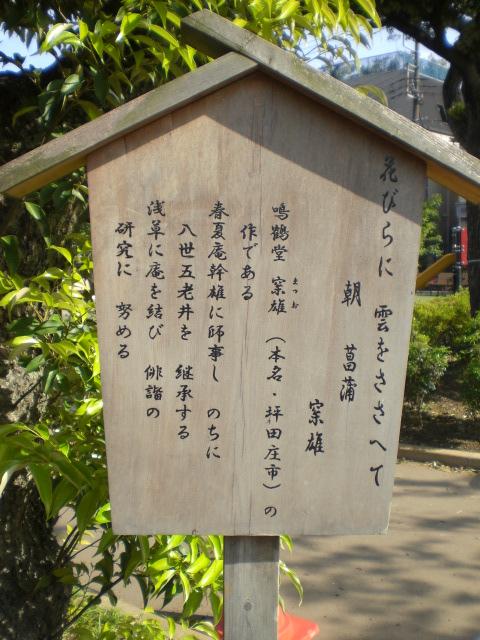 花びらに 雲をささへて
朝 菖蒲
寥雄
鳴鶴堂 寥雄 (本名・坪田庄市)の
まつお
作である
春夏庵幹雄に師事し のちに
八世五老井を 継承する
浅草に庵を結び 俳諧の
研究に 努める